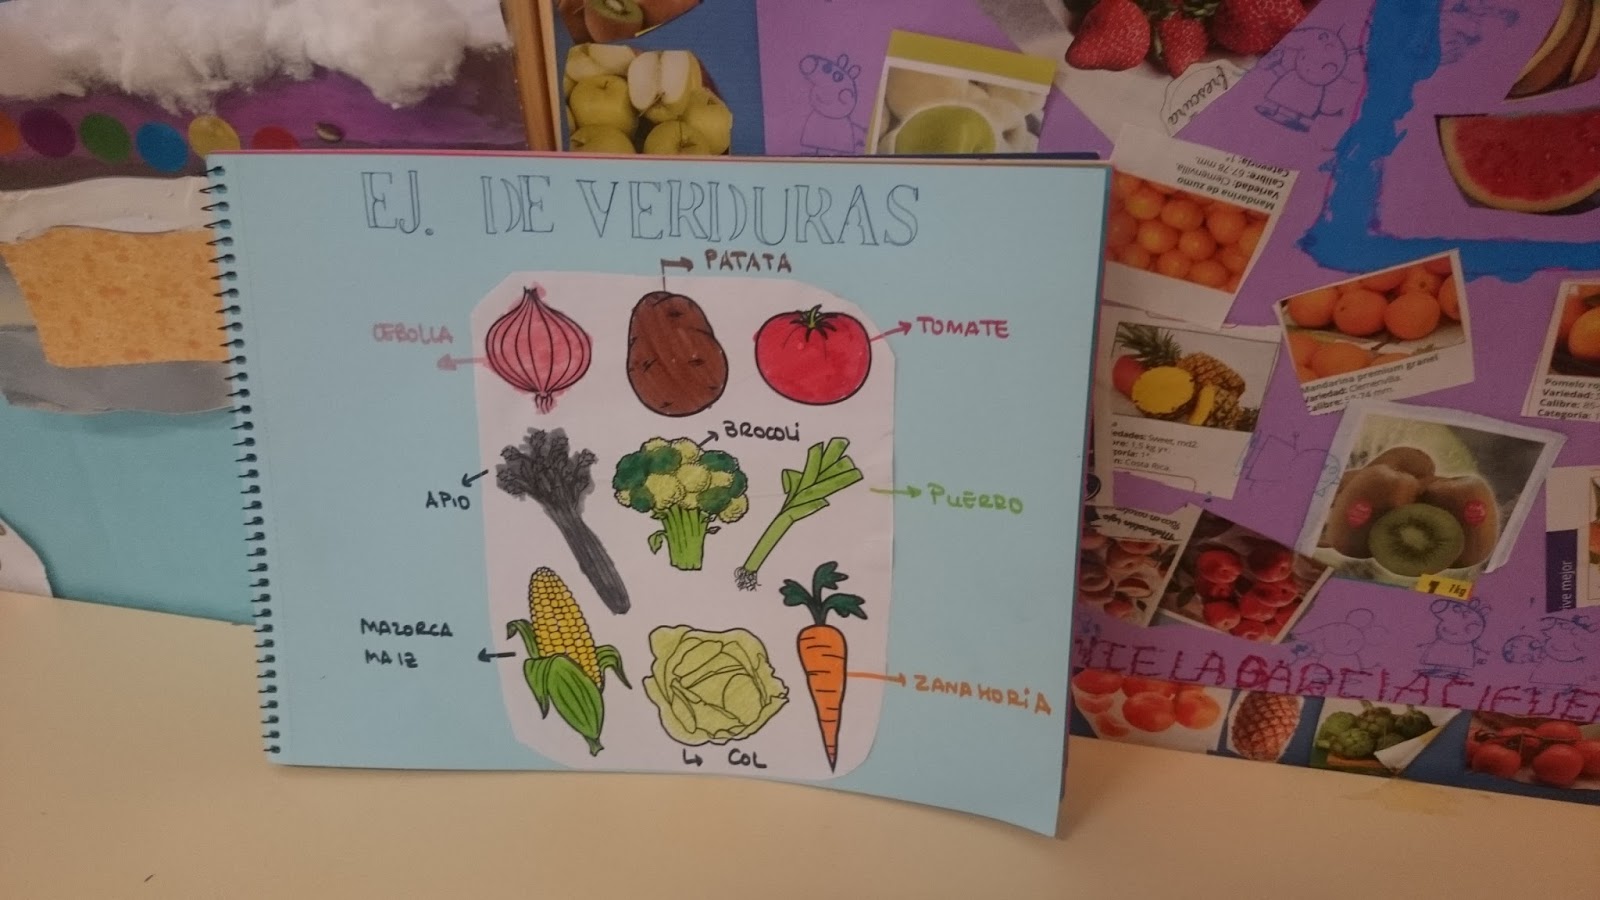 EJ. DE VERDURAS
PATATA
CEBOLLA
TOMATE
BROCOLI
APIO
PUERRO
MAZORCA
MAIZ
ZANAHORIA
COL
frescura
Mandarina de zumo
Variedad: Clemenvilla
Calibre: 67-78 mm.
Categoría: 1ª
Mandarina premium granel
Variedad: Clemenvilla.
Pomelo ro
Variedad:
Calibre:
Categoría:
edades: Sweet, md2.
1,5 kg
Costa Rica.
1kg
ive mejor